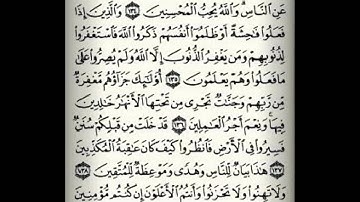 عَنِ ٱلنَّاسِ وَٱللَّهُ يُحِبُّ ٱلْمُحْسِنِينَ ١٣٤ وَٱلَّذِينَ إِذَا
فَعَلُوا۟ فَـٰحِشَةً أَوْ ظَلَمُوٓا۟ أَنفُسَهُمْ ذَكَرُوا۟ ٱللَّهَ فَٱسْتَغْفَرُوا۟
لِذُنُوبِهِمْ وَمَن يَغْفِرُ ٱلذُّنُوبَ إِلَّا ٱللَّهُ وَلَمْ يُصِرُّوا۟ عَلَىٰ
مَا فَعَلُوا۟ وَهُمْ يَعْلَمُونَ ١٣٥ أُو۟لَـٰٓئِكَ جَزَآؤُهُم مَّغْفِرَةٌ
مِّن رَّبِّهِمْ وَجَنَّـٰتٌ تَجْرِى مِن تَحْتِهَا ٱلْأَنْهَـٰرُ خَـٰلِدِينَ
فِيهَا وَنِعْمَ أَجْرُ ٱلْعَـٰمِلِينَ ١٣٦ قَدْ خَلَتْ مِن قَبْلِكُمْ سُنَنٌ
فَسِيرُوا۟ فِى ٱلْأَرْضِ فَٱنظُرُوا۟ كَيْفَ كَانَ عَـٰقِبَةُ ٱلْمُكَذِّبِينَ
١٣٧ هَـٰذَا بَيَانٌ لِّلنَّاسِ وَهُدًى وَمَوْعِظَةٌ لِّلْمُتَّقِينَ ١٣٨
وَلَا تَهِنُوا۟ وَلَا تَحْزَنُوا۟ وَأَنتُمُ ٱلْأَعْلَوْنَ إِن كُنتُم مُّؤْمِنِينَ